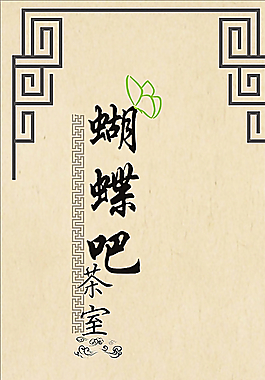 蝴蝶吧茶室